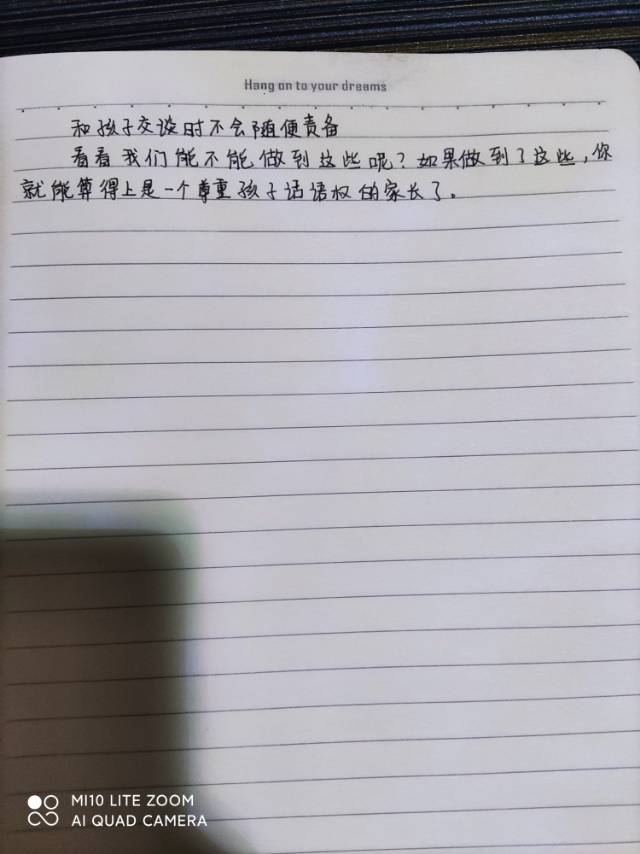 Hang on to your dreams
和孩子交谈时不会随便责备
看看我们能不能做到这些呢?如果做到了这些,你
就能算得上是一个尊重孩子话语权的家长了。
MI10 LITE ZOOM
AI QUAD CAMERA